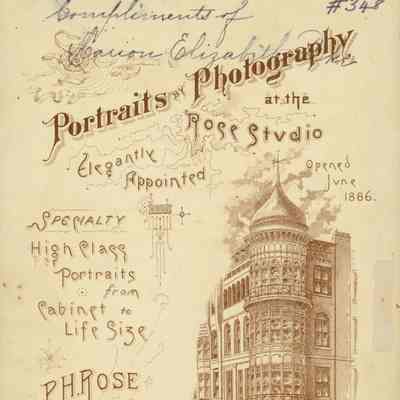 Compliments of
#348
Marion Elizabeth
Portraits by Photography
at the
Rose Studio
Elegantly
Appointed
Opened
June
1886.
Specialty
High Class
Portraits
from
Cabinet to
Life Size
P.H. Rose